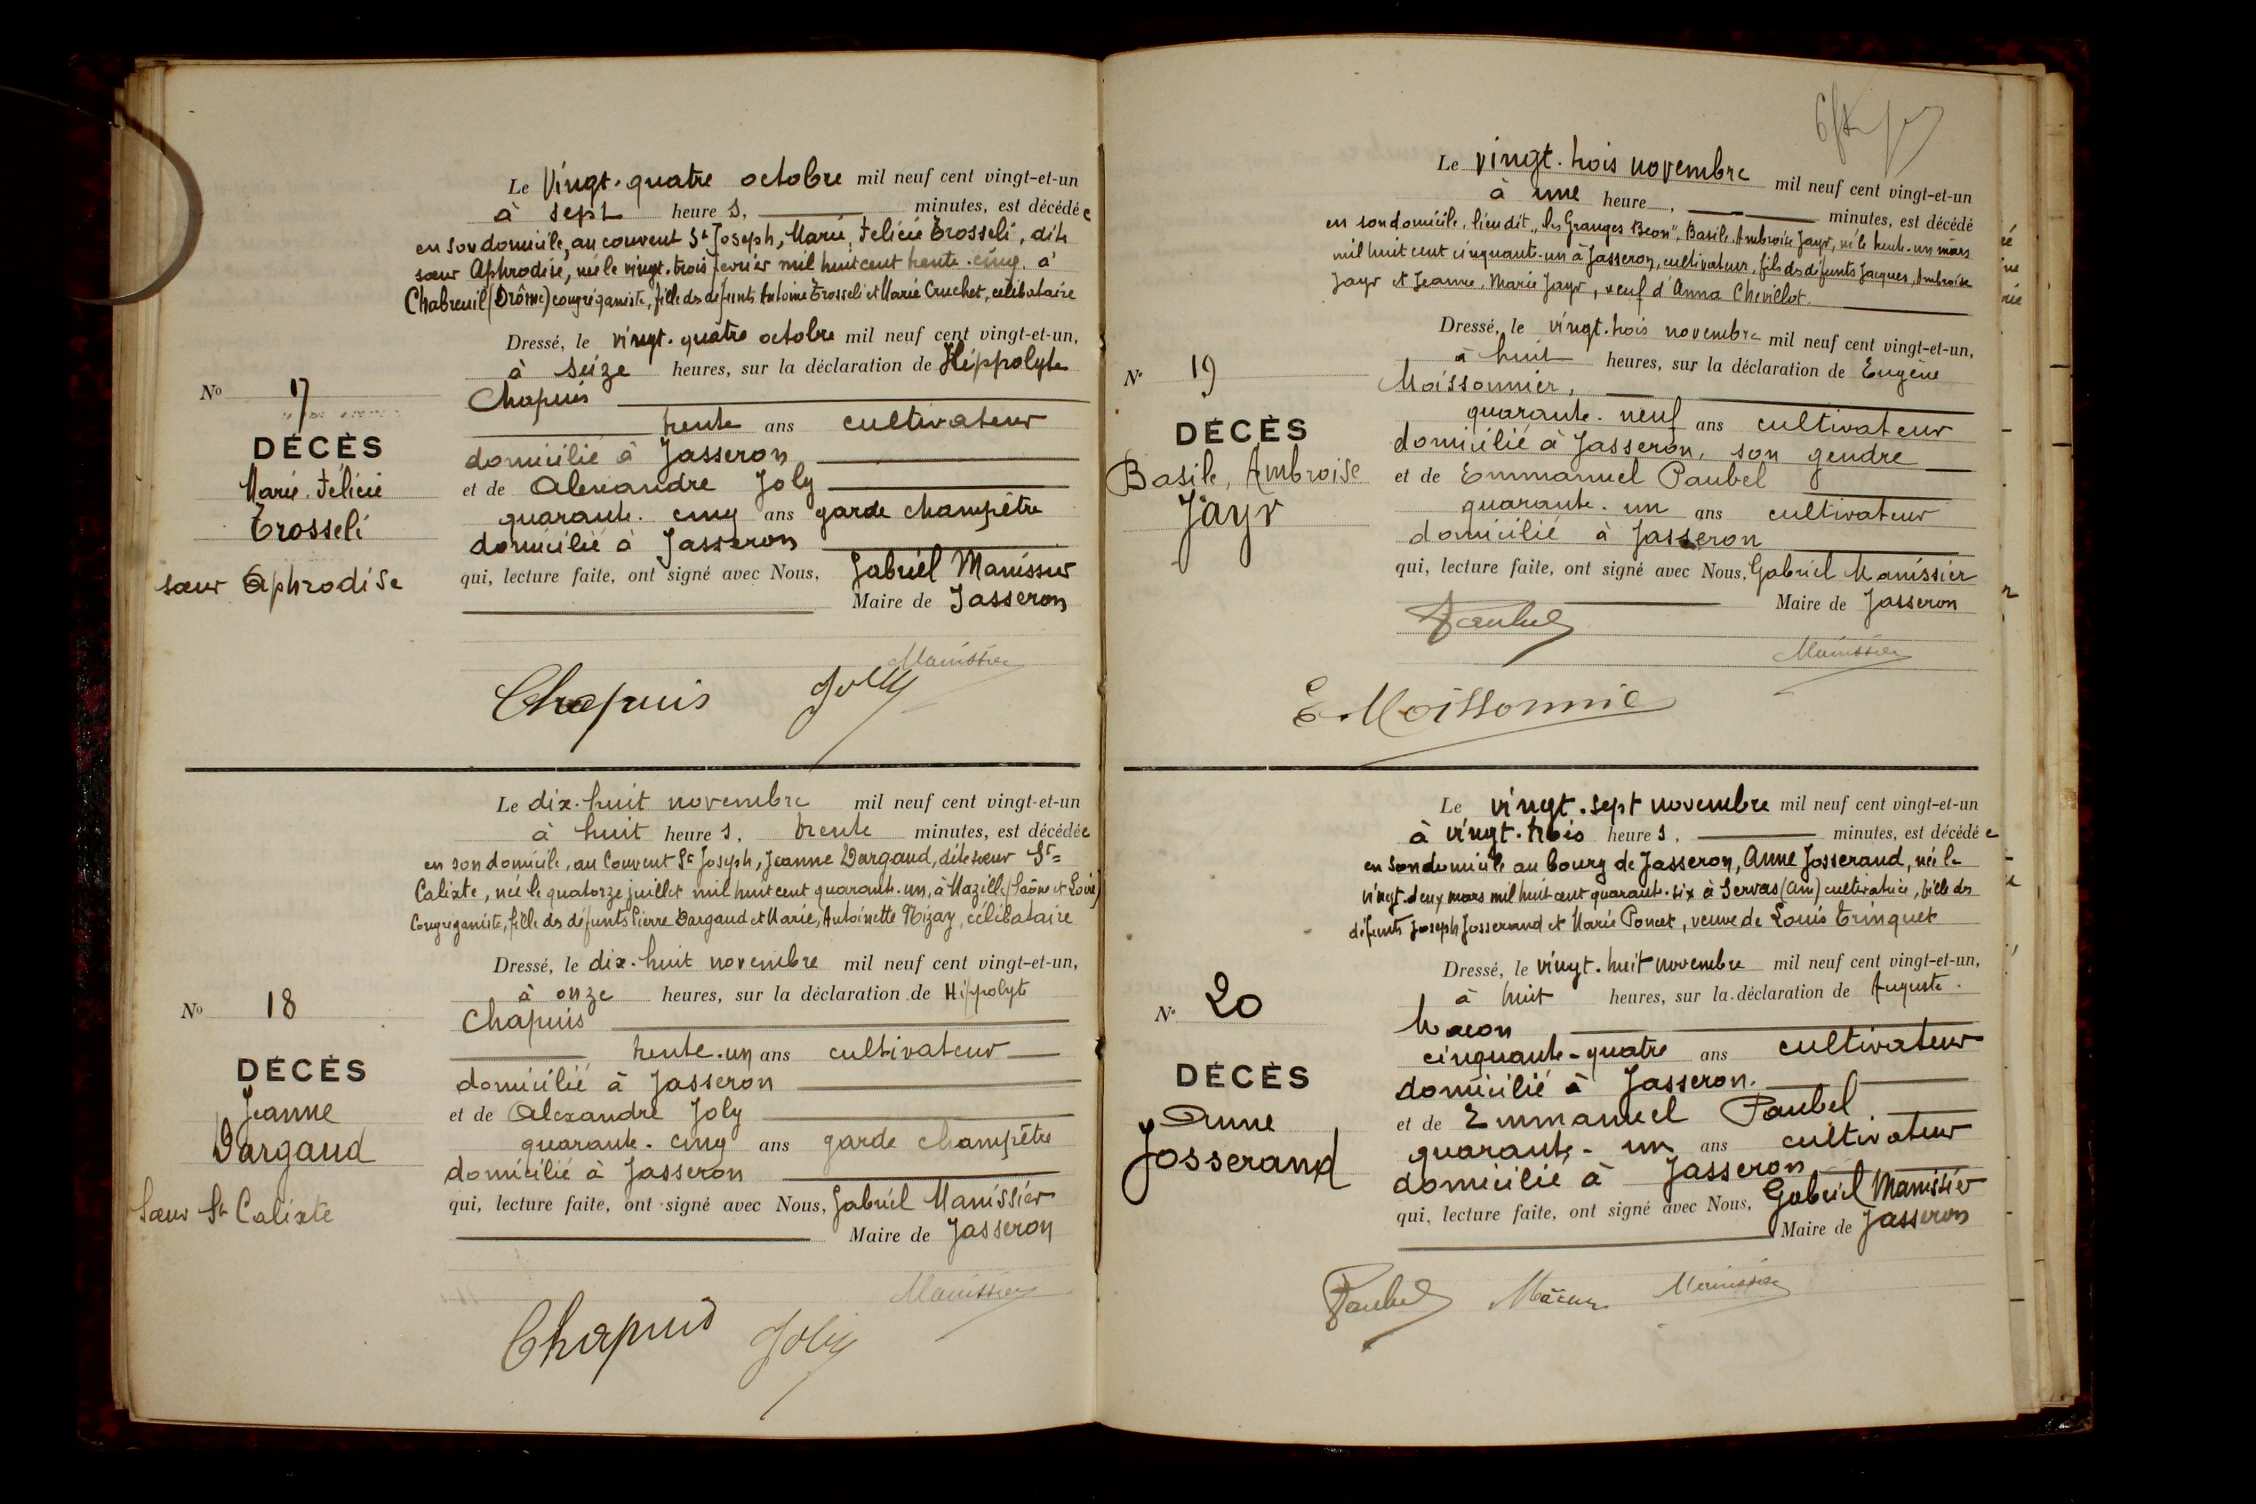 Le Vingt-quatre octobre mil neuf cent vingt-et-un
à sept heures, minutes, est décédée
en son domicile, au couvent St Joseph, Marie, Félicie Trosseli, dite
sœur Aphrodise, née le vingt-trois février mil huit cent trente-cinq, à
Chabreuil (Drôme) congréganiste, fille des défunts Antoine Trosseli et Marie Cruchet, célibataire
Dressé, le vingt-quatre octobre mil neuf cent vingt-et-un,
à seize heures, sur la déclaration de Hippolyte
Chapuis
trente ans cultivateur
domicilié à Jasseron
et de Alexandre Joly
quarante-cinq ans garde champêtre
domicilié à Jasseron
qui, lecture faite, ont signé avec Nous, Gabriel Manissier
Maire de Jasseron
No 17
DÉCÈS
Marie Félicie
Trosseli
sœur Aphrodise
Manissier
Chapuis Joly
Le dix-huit novembre mil neuf cent vingt-et-un
à huit heures, trente minutes, est décédée
en son domicile, au Couvent St Joseph, Jeanne Dargaud, dite sœur St=
Calixte, née le quatorze juillet mil huit cent quarante-un, à Mazille (Saône et Loire)
Congréganiste, fille des défunts Pierre Dargaud et Marie, Antoinette Nizay, célibataire
Dressé, le dix-huit novembre mil neuf cent vingt-et-un,
à onze heures, sur la déclaration de Hippolyte
Chapuis
trente-un ans cultivateur
domicilié à Jasseron
et de Alexandre Joly
quarante-cinq ans garde champêtre
domicilié à Jasseron
qui, lecture faite, ont signé avec Nous, Gabriel Manissier
Maire de Jasseron
No 18
DÉCÈS
Jeanne
Dargaud
Sœur St Calixte
Manissier
Chapuis Joly
Le vingt-trois novembre mil neuf cent vingt-et-un
à une heure, minutes, est décédé
en son domicile, lieu dit "les Granges Béon", Basile, Ambroise Jayr, né le trente-un mars
mil huit cent cinquante-un à Jasseron, cultivateur, fils des défunts Jacques, Ambroise
Jayr et Jeanne, Marie Jayr, veuf d'Anna Chevillot.
Dressé, le vingt-trois novembre mil neuf cent vingt-et-un,
à huit heures, sur la déclaration de Eugène
Moissonnier,
quarante-neuf ans cultivateur
domicilié à Jasseron, son gendre
et de Emmanuel Paubel
quarante-un ans cultivateur
domicilié à Jasseron
qui, lecture faite, ont signé avec Nous, Gabriel Manissier
Maire de Jasseron
No 19
DÉCÈS
Basile, Ambroise
Jayr
Paubel
Manissier
E. Moissonnie
Le vingt-sept novembre mil neuf cent vingt-et-un
à vingt-trois heures, minutes, est décédée
en son domicile au bourg de Jasseron, Anne Josserand, née le
vingt-deux mars mil huit cent quarante-six à Servas (Ain) cultivatrice, fille des
défunts Joseph Josserand et Marie Poncet, veuve de Louis Trinquet
Dressé, le vingt-huit novembre mil neuf cent vingt-et-un,
à huit heures, sur la déclaration de Auguste
Macon
cinquante-quatre ans cultivateur
domicilié à Jasseron.
et de Emmanuel Paubel.
quarante-un ans cultivateur
domicilié à Jasseron
qui, lecture faite, ont signé avec Nous, Gabriel Manissier
Maire de Jasseron
No 20
DÉCÈS
Anne
Josserand
Paubel Mâcon Manissier